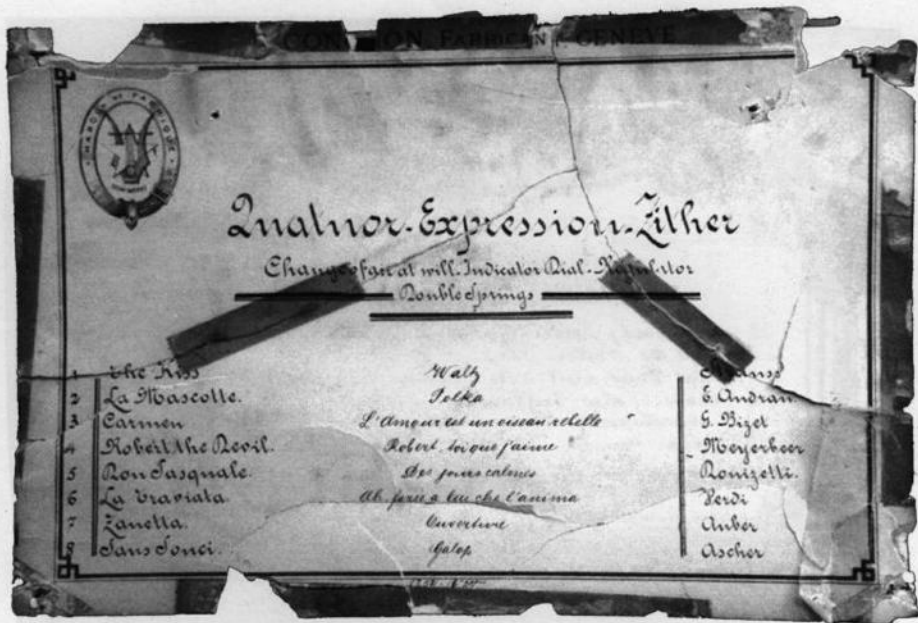 CON ON FABRICANT GENÈVE
MARQUE DE FABRIQUE
Quatuor-Expression-Zither
Change of air at will-Indicator Dial-Regulator
Double Springs
1 The Kiss Waltz Strauss
2 La Mascotte. Polka E. Andran
3 Carmen L'Amour est un oiseau rebelle G. Bizet
4 Robert the Devil. Robert toi que j'aime Meyerbeer
5 Don Pasquale. Des jours calmes Donizetti.
6 La Traviata. Ah. fors' e lui che l'anima Verdi
7 Zanetta. Ouverture Auber
8 Sans Souci. Galop Ascher